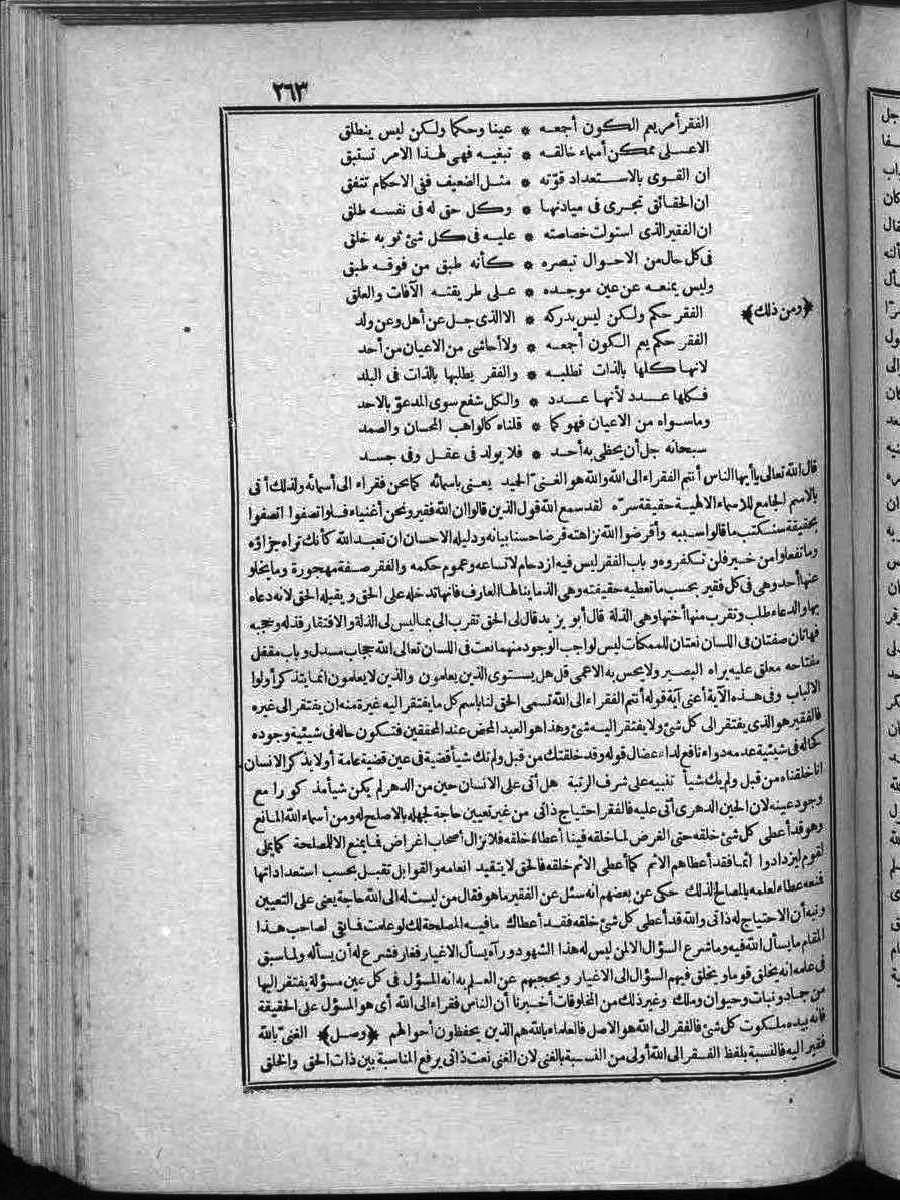 ٢٦٣
الفقر أمر يعم الكون أجعـه * عينا وحكما ولكن ليس ينطلق
الاعـلى ممكن أسماء خالقـه * تبغيـه فهى لهذا الامر تستبق
ان القـوى بالاستـعداد قوّته * مثـل الضعيف ففى الاحكام تتفق
ان الحقائق تجرى فى ميادنهـا * وكل حق له فى نفسـه طلق
ان الفقير الذى استولت خصاصته * عليـه فى كل شئ ثم به خلق
فى كل حال من الاحـوال تبصره * كأنه طبق من فوقـه طبق
وليس يمنعـه عن عين موجـده * عـلى طريقتـه الآفات والعلق
﴿ومن ذلك﴾ الفقر حكم ولكن ليس يدركه * الا الذى جـل عن أهل وعن ولد
الفقر حكم يعم الكون أجعـه * ولا أحاشى من الاعيان من أحد
لانهـا كلها بالذات تطلبـه * والفقر يطلبها بالذات فى البلد
فـكلها عـدد لأنهـا عـدد * والكل شفع سوى المدعوّ بالاحد
وماسـواه من الاعيان فهو كما * قلناه كالواهب المحسان والصمد
سبحانه جل أن يحظى به أحـد * فلا يولد فى عقـل وفى جسـد
قال الله تعالى ياأيها الناس أنتم الفقراء الى الله والله هو الغنىّ الحميد يعنى باسمائه كما نحن فقراء الى أسمائه ولذلك أتى
بالاسم الجامع للاسماء الالهيـة حقيقة سرّه لقد سمع الله قول الذين قالوا ان الله فقير ونحن أغنياء فلو اتصفوا اتصفوا
بحقيقة سنكتب ما قالوا سببه وأقرضوا الله نزاهته قرضا حسنا بيانه ودليله الاحسان ان تعبـد الله كأنك تراه جزاؤه
وما تفعلوا من خير فلن تكفروه و باب الفقر ليس فيه ازدحام لاتساعه وعموم حكمه والفقر صفة مهجورة وما يخلو
عنها أحد وهى فى كل فقير بحسب ما تعطيه حقيقته وهى ألذ ما ينالها العارف فانها تدخله على الحق ويقبله الحق لانه دعاه
بها والدعاء طلب وتقرب منها أختها وهى الذلة قال أبو يزيد قال لى الحق تقرب الى بما ليس لى الذلة والافتقار فذله وحجبه
فهاتان صفتان فى اللسان نعتان للممكنات ليس لواجب الوجود منهما نعت فى اللسان تعالى الله حجاب مسدل وباب مقفل
مفتاحه معلق عليه يراه البصير ولا يحس به الاعمى قل هل يستوى الذين يعلمون والذين لا يعلمون انما يتذكر أولوا
الالباب وفى هذه الآية أعنى آية قوله أنتم الفقراء الى الله تسمى الحق لنا باسم كل ما يفتقر اليه غيرة منه ان يفتقر الى غيره
فالفقير هو الذى يفتقر الى كل شئ ولا يفتقر اليه شئ وهذا هو العبد المحض عند المحققين فتكون حاله فى شيئية وجوده
كحاله فى شيئية عدمه دواء نافع لداء عضال قوله وقد خلقتك من قبل ولم تك شيأ قضية فى عين قضية عامة أولا يذكر الانسان
انا خلقناه من قبل ولم يك شيأ تنبيه على شرف الرتبة هل أتى على الانسان حين من الدهر لم يكن شيأ مذكورا مع
وجود عينه لان الحين الدهرى أتى عليه فالفقر احتياج ذاتى من غير تعيين حاجة لجهله بالاصلح له ومن أسماء الله المانع
وهو قد أعطى كل شئ خلقه حتى الغرض لما خلقه فينا أعطاه خلقه فلا نزال أصحاب اغراض فما يمنع الا لمصلحة كما يملى
لقوم ليزدادوا اثما فقد أعطاهم الاثم كما أعطى الاثم خلقه فالحق لا يتقيد انعامه والقوابل تقبل بحسب استعداداتها
فنعه عطاء لعلمه بالمصالح لذلك حكى عن بعضهم انه سئل عن الفقير ما هو فقال من ليست له الى الله حاجة يعنى على التعيين
ونبه أن الاحتياج له ذاتى والله قد أعطى كل شئ خلقه فقد أعطاك ما فيه المصلحة لك لو علمت فما بقى لصاحب هـذا
المقام ما يسأل الله فيه وما شرع السؤال الا لمن ليس له هذا الشهود ورآه يسأل الاغيار فغار فشرع له أن يسأله ولما سبق
فى علمه انه يخلق قوما ويخلق فيهم السؤال الى الاغيار ويحجبهم عن العلم به انه المسؤل فى كل عين مسؤلة يفتقر اليها
من جماد ونبات وحيوان وملك وغير ذلك من المخلوقات أخبرنا أن الناس فقراء الى الله أى هو المسؤل على الحقيقة
فانه بيده ملكوت كل شئ فالفقر الى الله هو الاصل فالعلماء بالله هم الذين يحفظون أحوالهم ﴿وصل﴾ الغنىّ بالله
فقير اليه فالنسبة بلفظ الفقر الى الله أولى من النسبة بالغنى لان الغنى نعت ذاتى يرفع المناسبة بين ذات الحق والخلق